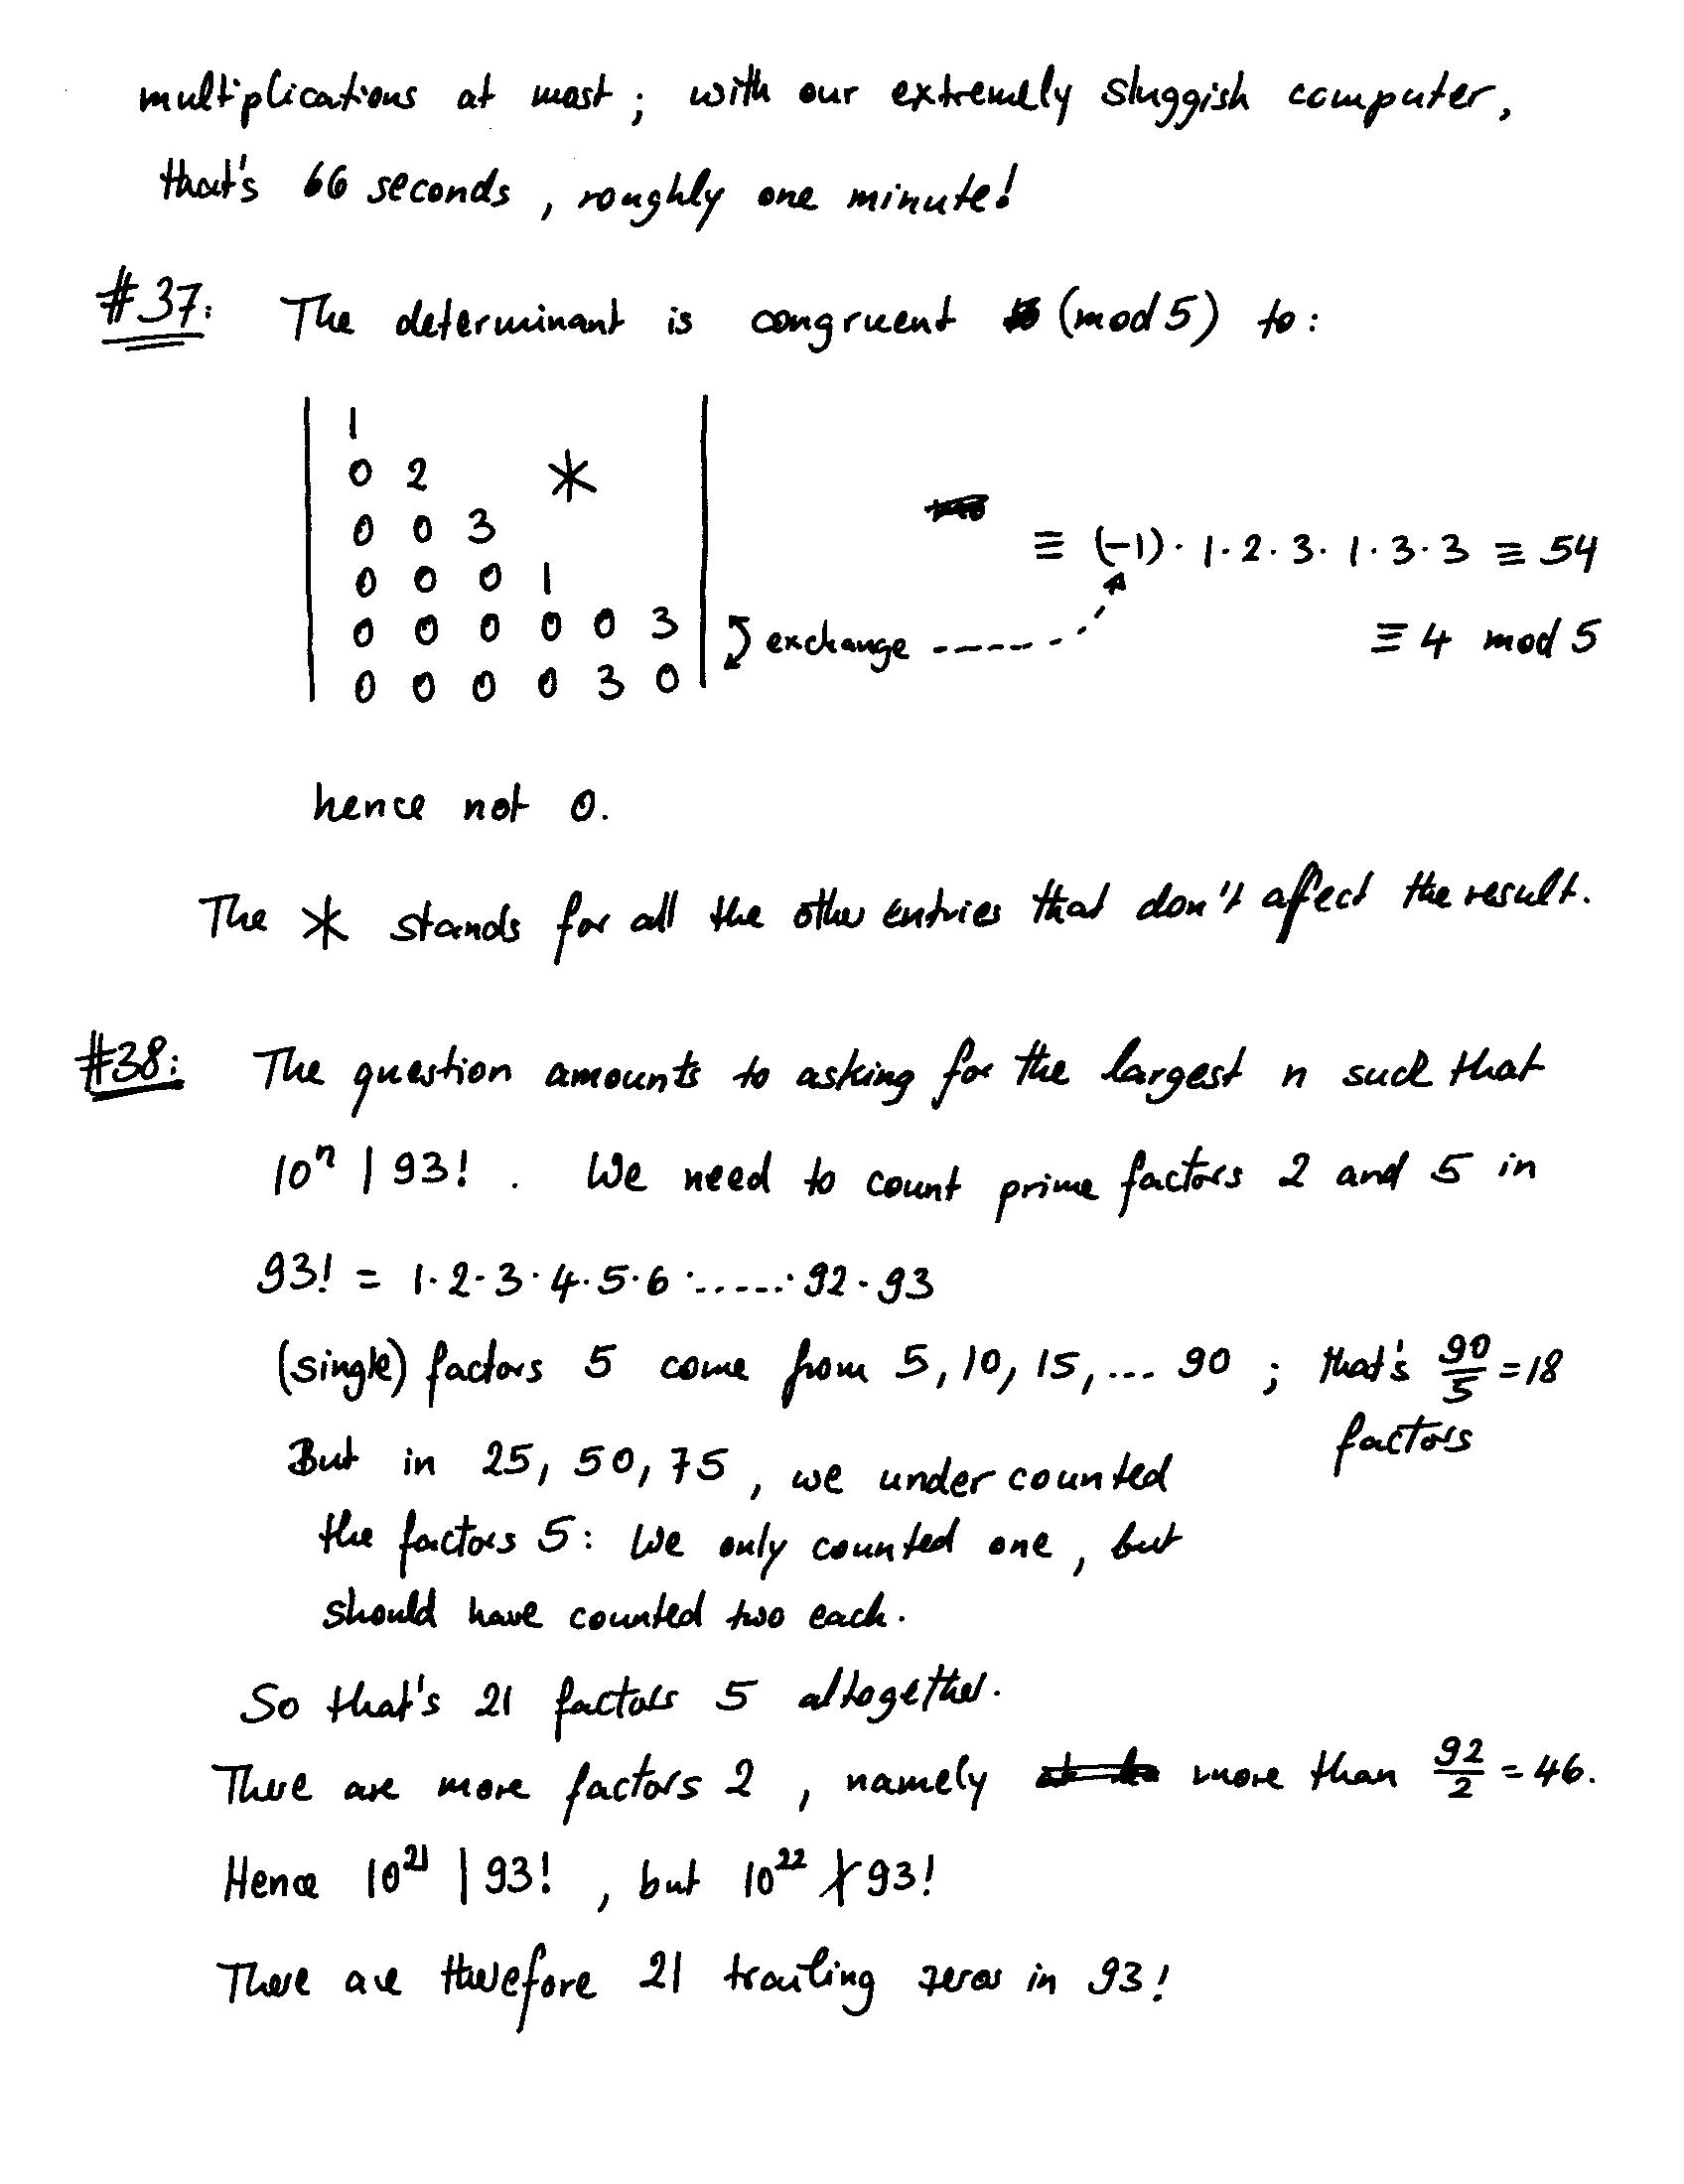 multiplications at most; with our extremely sluggish computer,
that's 66 seconds, roughly one minute!
#37: The determinant is congruent (mod 5) to:
1
0 2 *
0 0 3
≡ (-1)· 1·2·3·1·3·3 ≡ 54
0 0 0 1
0 0 0 0 0 3
exchange
≡ 4 mod 5
0 0 0 0 3 0
hence not 0.
The * stands for all the other entries that don't affect the result.
#38: The question amounts to asking for the largest n such that
10ⁿ | 93! . We need to count prime factors 2 and 5 in
93! = 1·2·3·4·5·6·.....·92·93
(single) factors 5 come from 5, 10, 15, ... 90 ; that's 90/5 = 18
factors
But in 25, 50, 75, we under counted
the factors 5: We only counted one, but
should have counted two each.
So that's 21 factors 5 altogether.
There are more factors 2, namely more than 92/2 = 46.
Hence 10²¹ | 93! , but 10²² ∤ 93!
There are therefore 21 trailing zeros in 93!